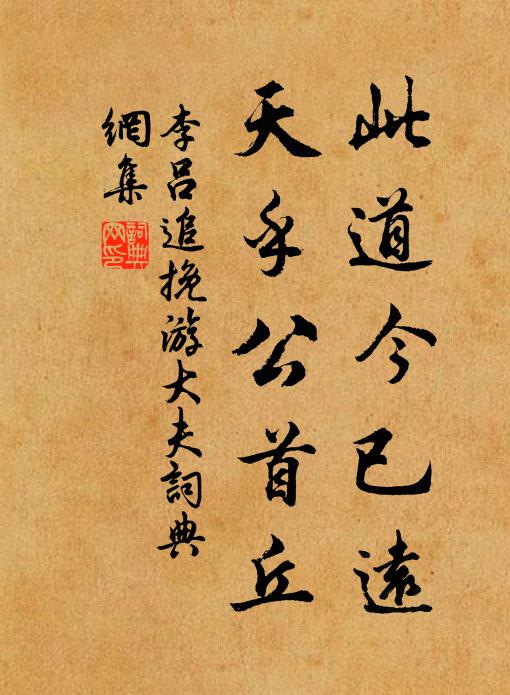 此道今已遠
天乎公首丘
李呂追挽游大夫詞典
網集
詞典
網印